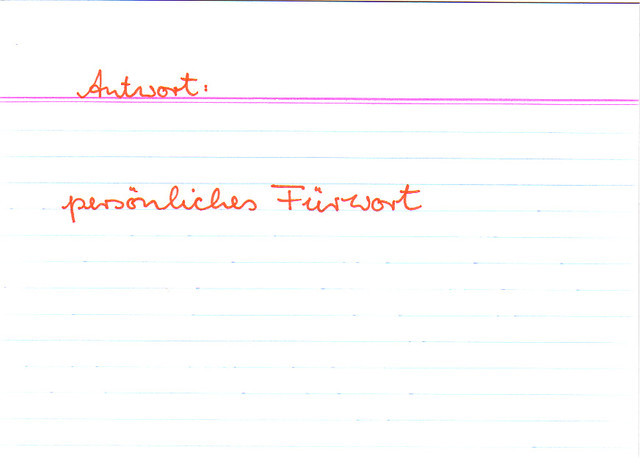 Antwort:
persönliches Fürwort